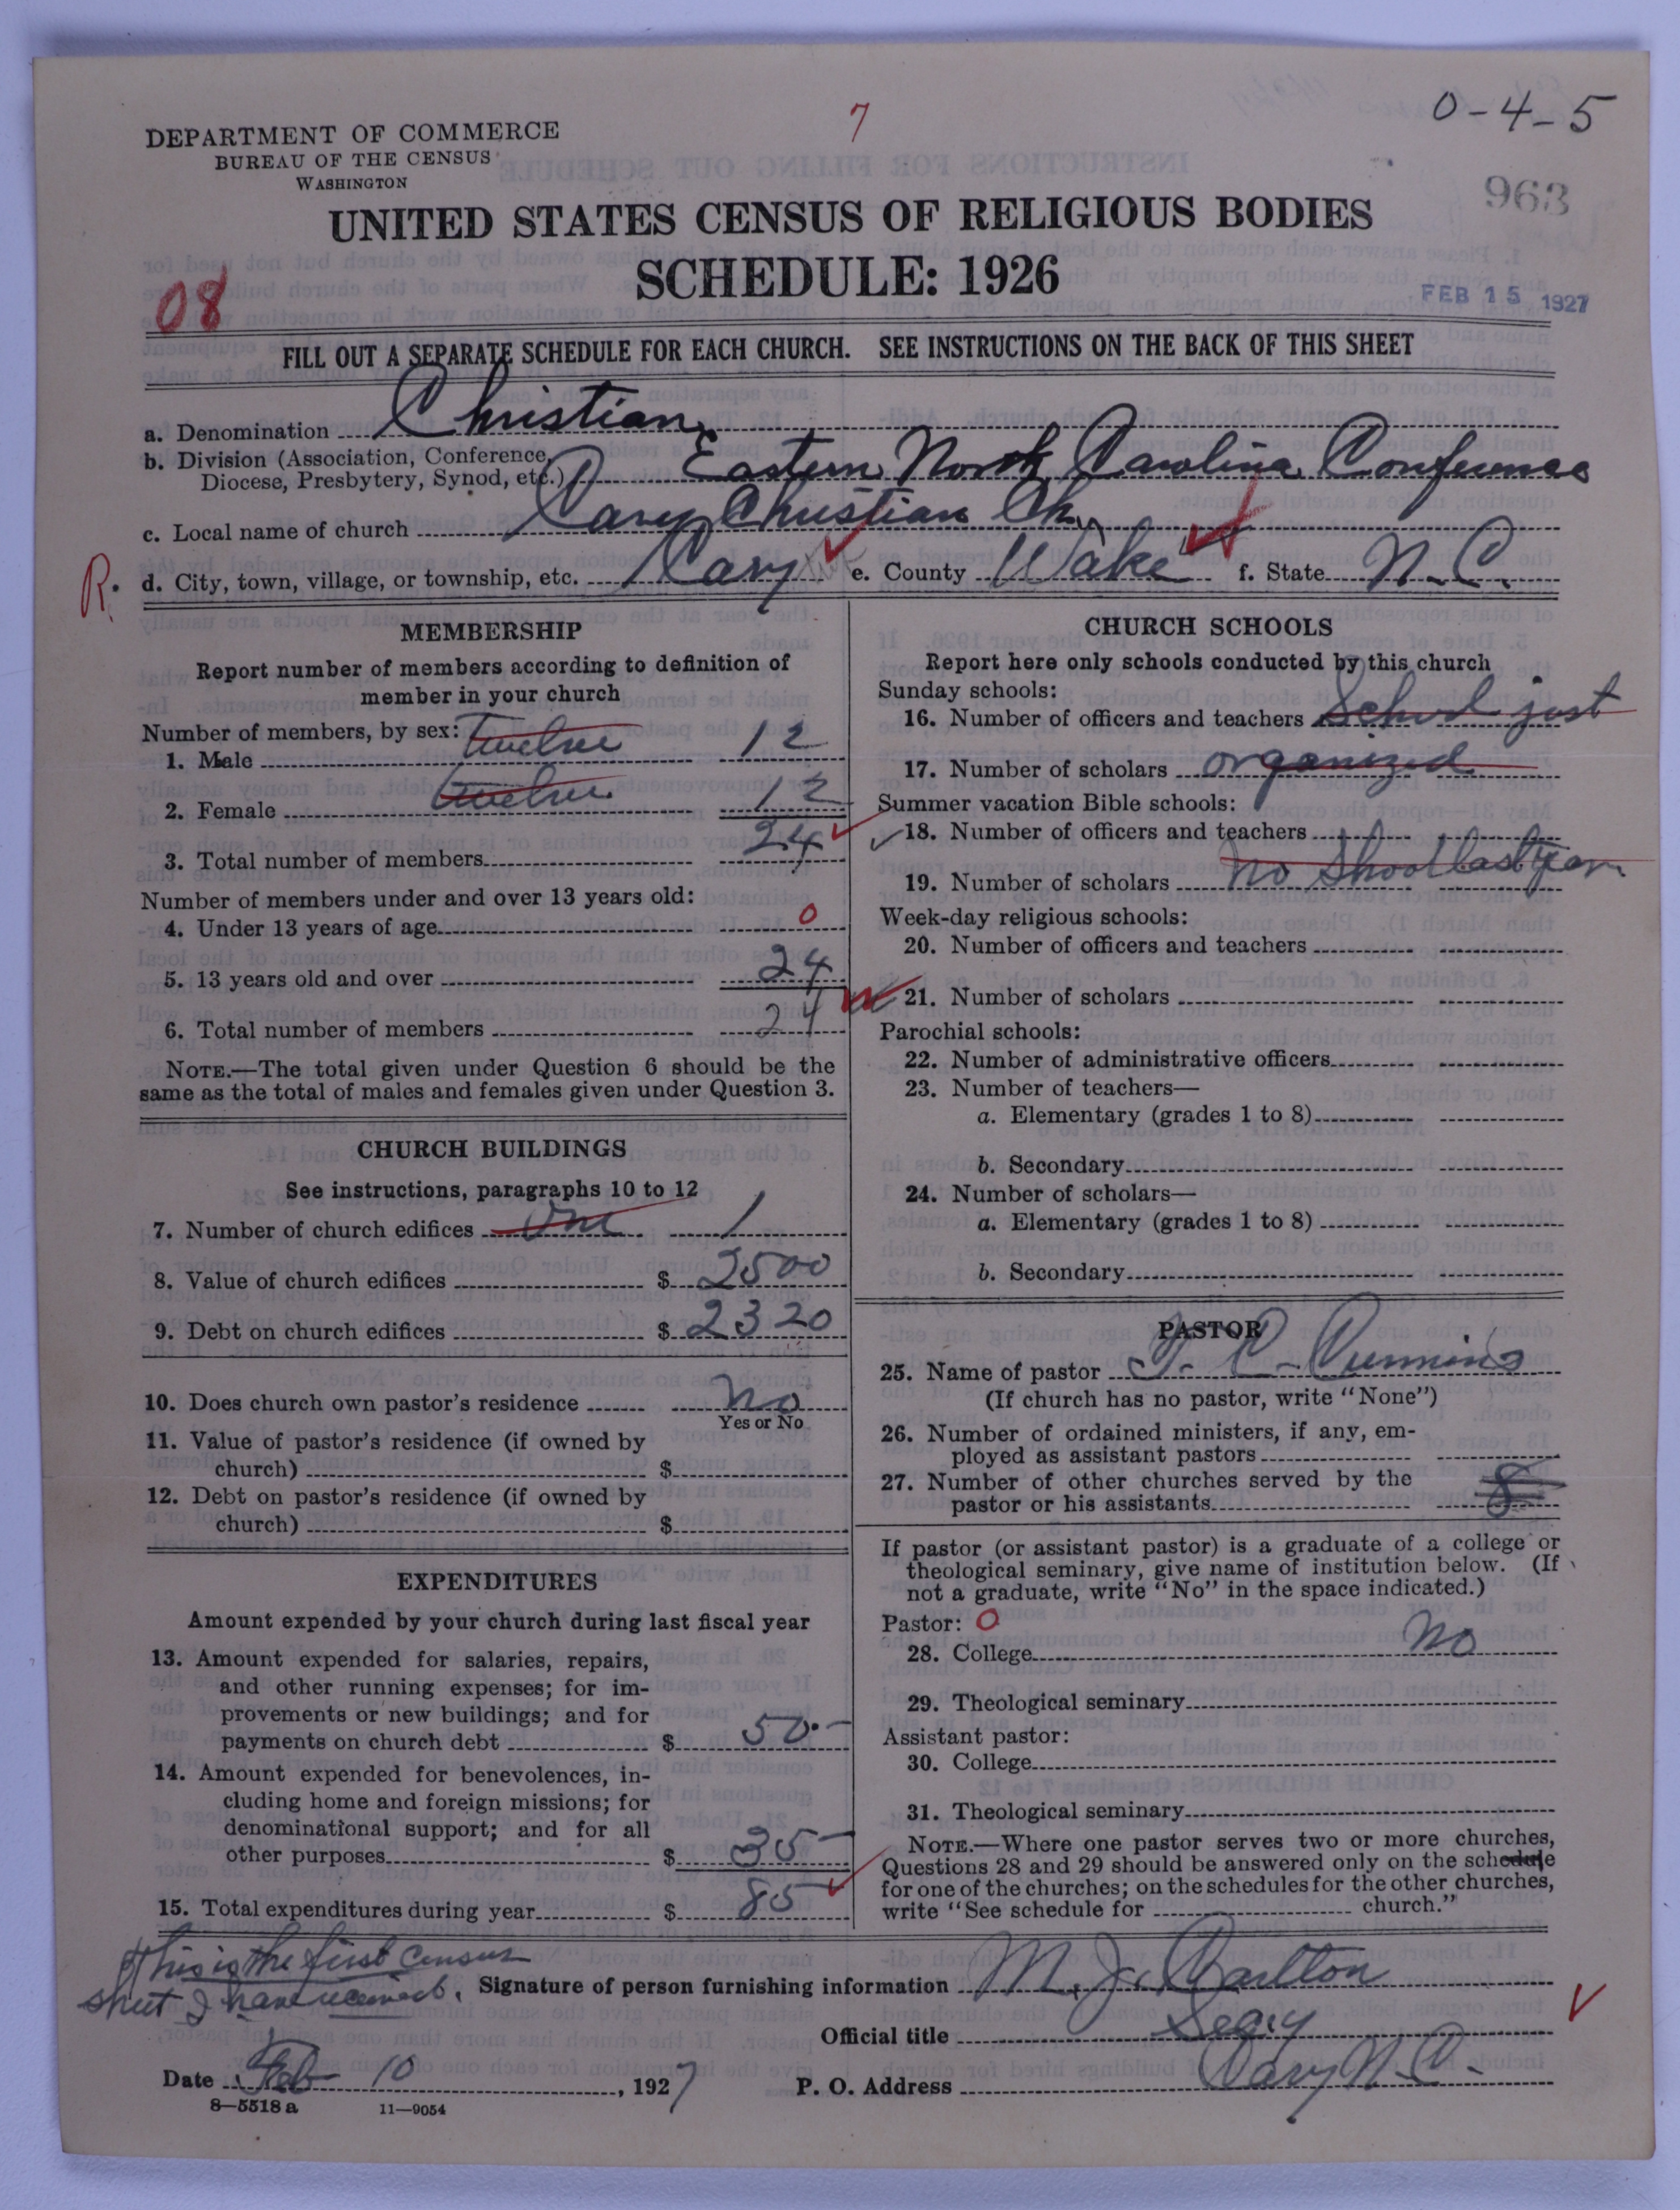 7
0-4-5
DEPARTMENT OF COMMERCE
BUREAU OF THE CENSUS
WASHINGTON
963
UNITED STATES CENSUS OF RELIGIOUS BODIES
SCHEDULE: 1926
08
FEB 15 1927
FILL OUT A SEPARATE SCHEDULE FOR EACH CHURCH. SEE INSTRUCTIONS ON THE BACK OF THIS SHEET
a. Denomination Christian
b. Division (Association, Conference,
Diocese, Presbytery, Synod, etc.) Eastern North Carolina Conference
c. Local name of church Cary Christian Ch.
R. d. City, town, village, or township, etc. Cary e. County Wake f. State N. C.
MEMBERSHIP
Report number of members according to definition of
member in your church
Number of members, by sex:
1. Male Twelve 12
2. Female Twelve 12
3. Total number of members 24
Number of members under and over 13 years old:
4. Under 13 years of age 0
5. 13 years old and over 24
6. Total number of members 24
NOTE.—The total given under Question 6 should be the
same as the total of males and females given under Question 3.
CHURCH BUILDINGS
See instructions, paragraphs 10 to 12
7. Number of church edifices One 1
8. Value of church edifices $ 2500
9. Debt on church edifices $ 2320
10. Does church own pastor's residence No
Yes or No
11. Value of pastor's residence (if owned by
church) $
12. Debt on pastor's residence (if owned by
church) $
EXPENDITURES
Amount expended by your church during last fiscal year
13. Amount expended for salaries, repairs,
and other running expenses; for im-
provements or new buildings; and for
payments on church debt $ 50.-
14. Amount expended for benevolences, in-
cluding home and foreign missions; for
denominational support; and for all
other purposes $ 35-
15. Total expenditures during year $ 85
CHURCH SCHOOLS
Report here only schools conducted by this church
Sunday schools:
16. Number of officers and teachers School just
17. Number of scholars organized
Summer vacation Bible schools:
18. Number of officers and teachers
19. Number of scholars no shool last year
Week-day religious schools:
20. Number of officers and teachers
21. Number of scholars
Parochial schools:
22. Number of administrative officers
23. Number of teachers—
a. Elementary (grades 1 to 8)
b. Secondary
24. Number of scholars—
a. Elementary (grades 1 to 8)
b. Secondary
PASTOR
25. Name of pastor
(If church has no pastor, write "None")
26. Number of ordained ministers, if any, em-
ployed as assistant pastors
27. Number of other churches served by the
pastor or his assistants 8
If pastor (or assistant pastor) is a graduate of a college or
theological seminary, give name of institution below. (If
not a graduate, write "No" in the space indicated.)
Pastor: 0
28. College No
29. Theological seminary
Assistant pastor:
30. College
31. Theological seminary
NOTE.—Where one pastor serves two or more churches,
Questions 28 and 29 should be answered only on the schedule
for one of the churches; on the schedules for the other churches,
write "See schedule for church."
This is the first census
sheet I have received.
Signature of person furnishing information M. J. Carlton
Official title Secy
Date Feb 10, 1927
P. O. Address Cary N. C.
8—5518 a 11—9054